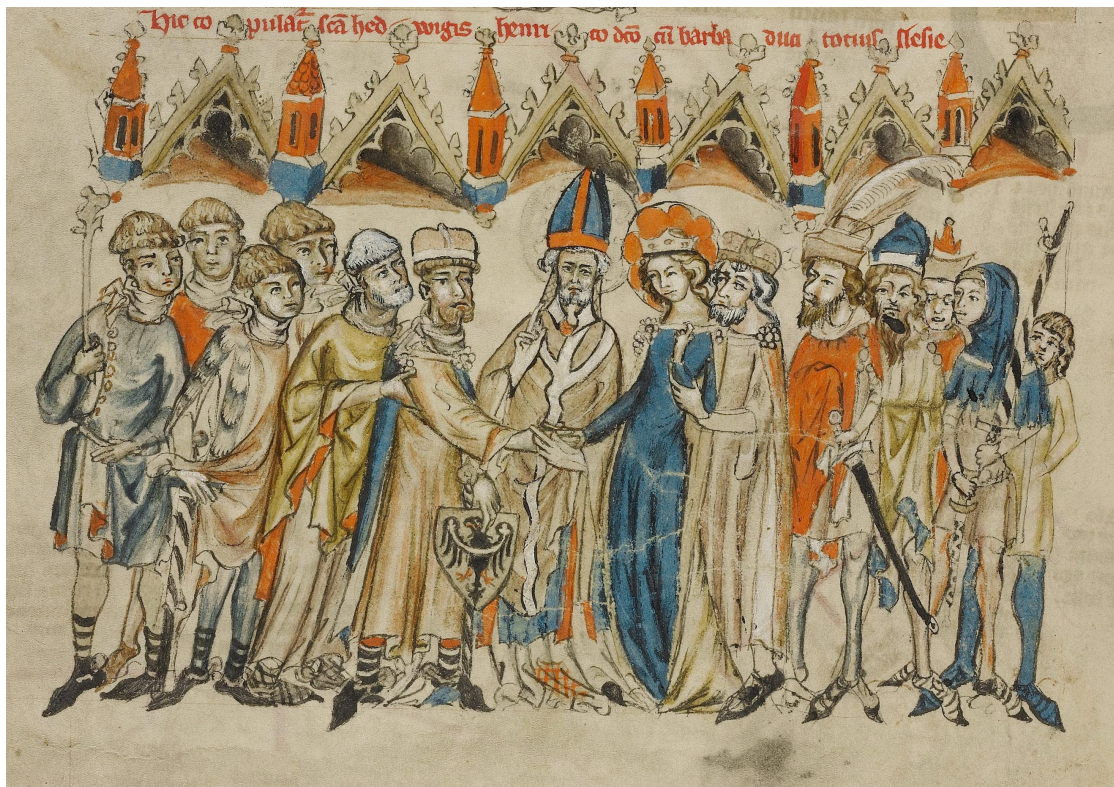 Hic co pulat̄ sc̄a hed wigis henri co dc̄o cū barba duci totius slesie